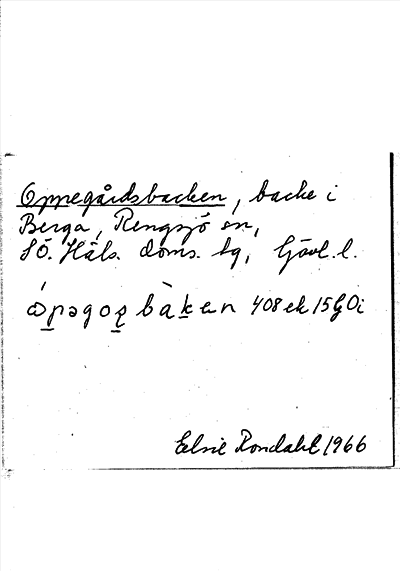 Oppegårdsbacken, backe i
Berga, Rengsjö sn,
SÖ. Häls. doms. tg, Gävl. l.
ɷ́pəgoʂ bàken 408 ek 15 G Oi
Elsie Rondahl 1966